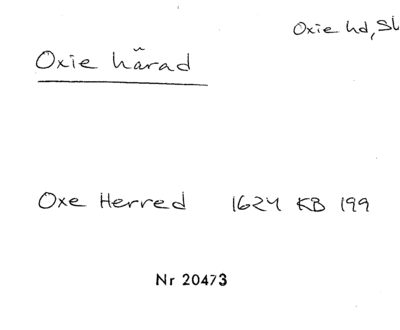 Oxie hd, Sk
Oxie härad
Oxe Herred 1624 KB 199
Nr 20473